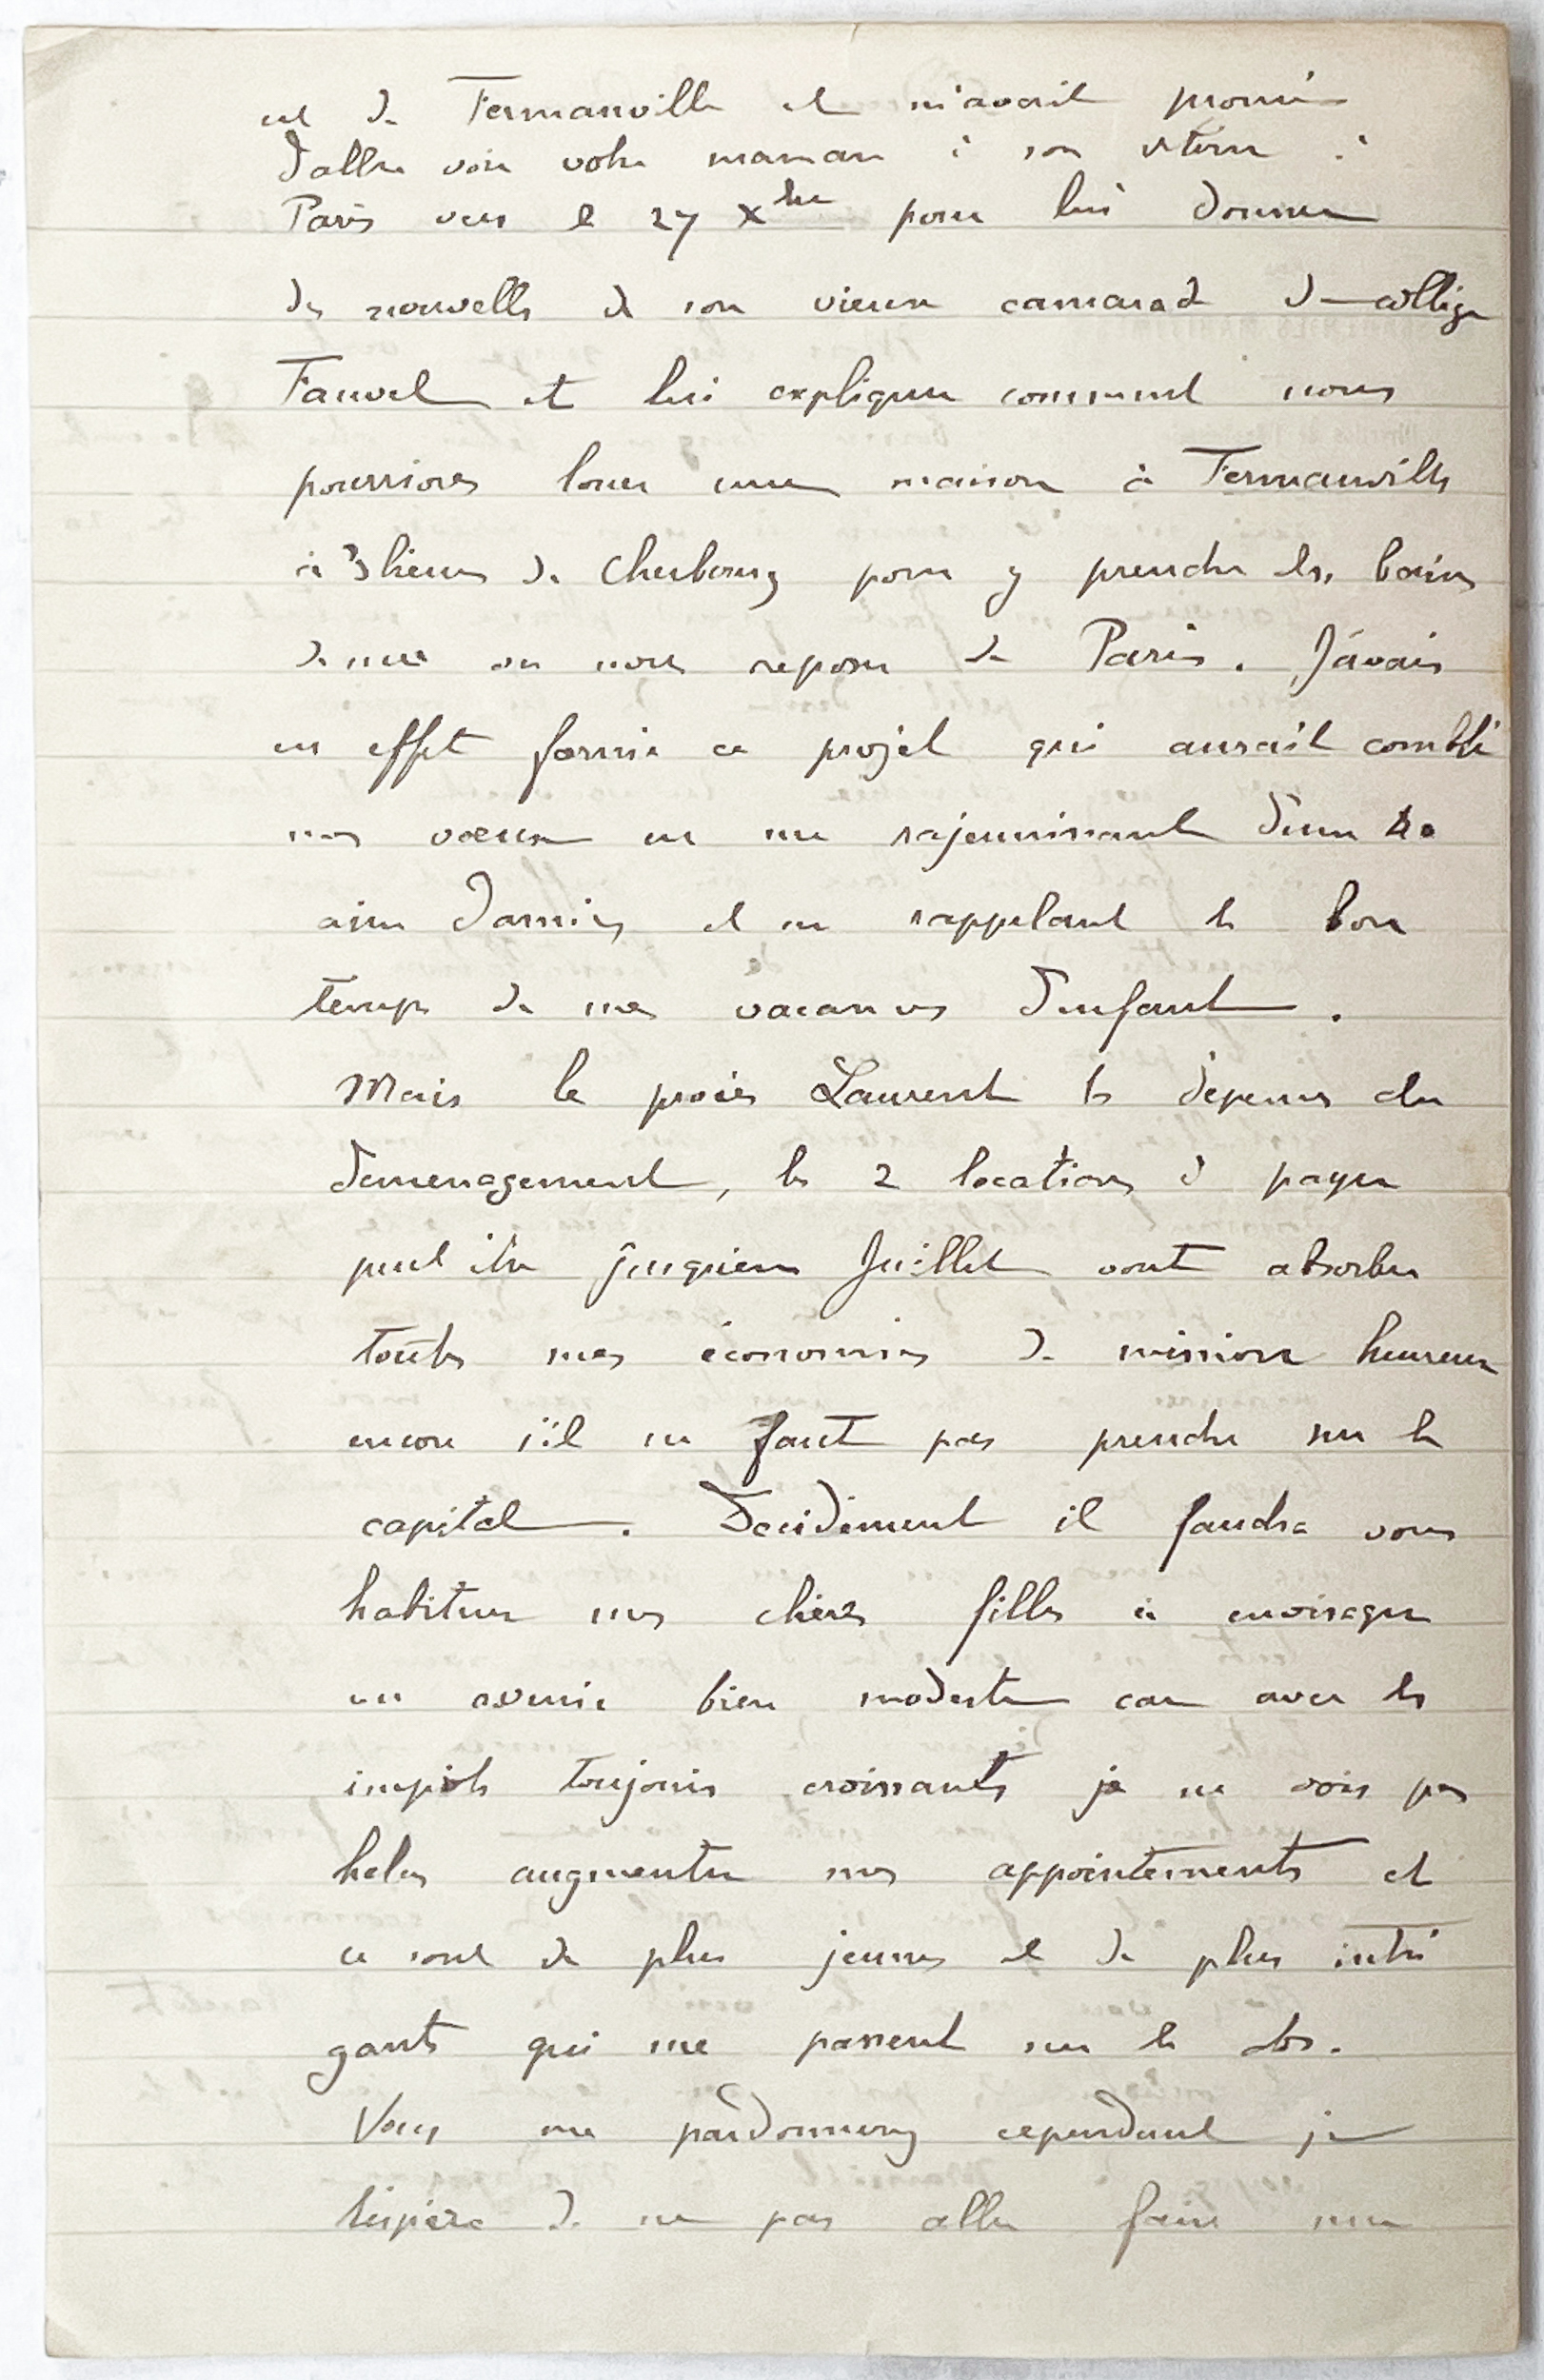 est de Fermanville et m'avait promis
d'aller voir votre maman à son retour à
Paris vers le 27 Xbre pour lui donner
des nouvelles de son vieux camarade de collège
Fauvel et lui expliquer comment nous
pourrions louer une maison à Fermanville
à 3 lieues de Cherbourg pour y prendre les bains
de mer ou nous reposer de Paris. J'avais
en effet formé ce projet qui aurait comblé
mes voeux en me rajeunissant d'une
aine d'années et en rappelant le bon
temps de mes vacances d'enfant.
Mais le procès Laurent les dépenses du
déménagement, les 2 locations à payer
peut être jusqu'en Juillet vont absorber
toutes mes économies de mission heureux
encore s'il ne faut pas prendre sur le
capital. Décidément il faudra vous
habituer mes chères filles à envisager
un avenir bien modeste car avec les
impôts toujours croissants je ne vois pas
helas augmenter mes appointements et
ce sont de plus jeunes et de plus intri
gants qui me passent sur le dos.
Vous me pardonnerez cependant je
l'espère de ne pas aller faire une